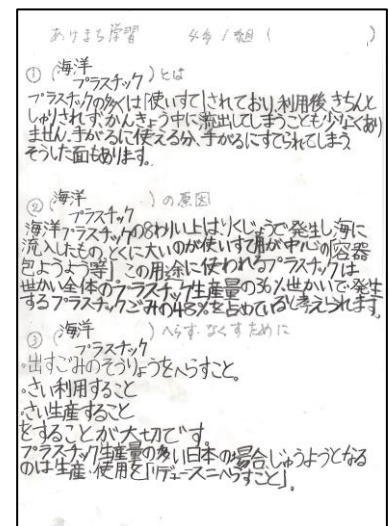 あけまち学習 4年1組( )
①(海洋
プラスチック)とは
プラスチックの多くは「使いすて」されており、利用後、きちんと
しょりされず、かんきょう中に流出してしまうことも少なくあり
ません。手がるに使える分、手がるにすてられてしまう
そうした面もあります。
②(海洋
プラスチック)の原因
海洋プラスチックの8わりい上はりくじょうで発生し海に
流入したもの。とくに大いのが使いすて用が中心の「容器
包ようよう等」この用途に使われるプラスチックは
世かい全体のプラスチック生産量の36%世かいで発生
するプラスチックごみの48%を占めていると考えられます。
③(海洋
プラスチック)へらす・なくすために
・出すごみのそうりょうをへらすこと。
・さい利用すること
・さい生産すること
をすることが大切です。
プラスチック生産量の多い日本の場合、じゅうようとなる
のは生産・使用を「リデュース=へらすこと」。